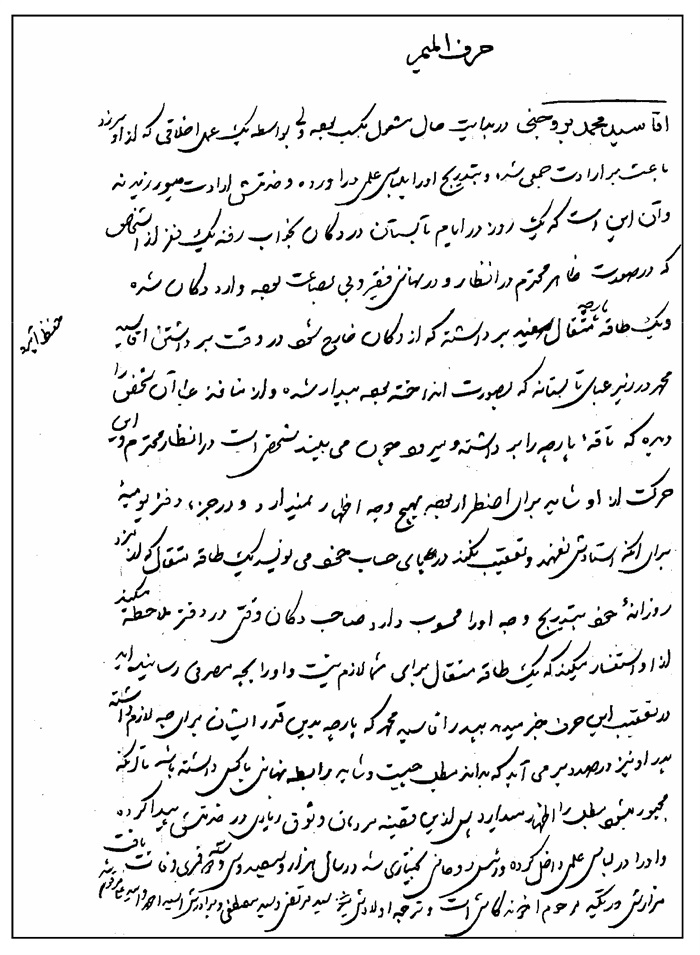 حرف المیم
اقا سید محمد بروجنی در بدایت حال مشغول بکسب بوده ولی بواسطه یک عمل اخلاقی که از او سر زد
باعث بر ارادت جمعی شد و بتدریج او را بلباس علمی در آورده و خدمتش ارادت میورزیدند
وآن این است که یک روز در ایام تابستان در دکان بخواب رفته یک نفر از اشخاص
که در صورت ظاهر محترم در انظار و در نهانی فقیر و بی بضاعت بوده وارد دکان شده
ویک طاقه پارچه متقال سفید برداشته که از دکان خارج شود در وقت برداشتن اقا سید
محمد در زیر عبای تابستانه که بصورت انداخته بوده بیدار شده و از منافذ عبا آن شخص را
دیده که طاقهٔ پارچه را برداشته و میرود چون می بیند شخصی است در انظار محترم و این
حرکت از او شاید برای اضطرار بوده بهیچ وجه اظهار نمیدارد و در جزء دفتر یومیهٔ
برای انکه استادش نفهمد و تعقیب نکند در پای حساب خود می نویسد یک طاقه متقال که از مزد
روزانهٔ خود بتدریج وجه اورا محسوب دارد صاحب دکان وقتی در دفتر ملاحظه میکند
از او استفسار میکند که یک طاقه متقال برای شما لازم نیست و اورا بچه مصرفی رسانیده اید
در تعقیب این حرف خبر میدهد بپدر آقا سید محمد که پارچه بدین قدر ایشان برای چه لازم داشته
پدر او نیز در صدد بر می آید که بداند مطلب چیست و شاید رابطه نهانی باکسی داشته باشد تا آنکه
مجبور میشود مطلب را اظهار میدارد پس از این قضیه مردمان وثوق زیادی در خدمتش پیدا کرده
و اورا در لباس علمی داخل کرده و رئیس روحانی بختیاری شد در سال هزار و سیصد و سی و قمری وفات یافت
مزارش در تکیه مرحوم اخوند کاشی است و ترجمه اولادش شیخ سید مرتضی و سید مصطفی و برادرش السید احمد
حفظ آید